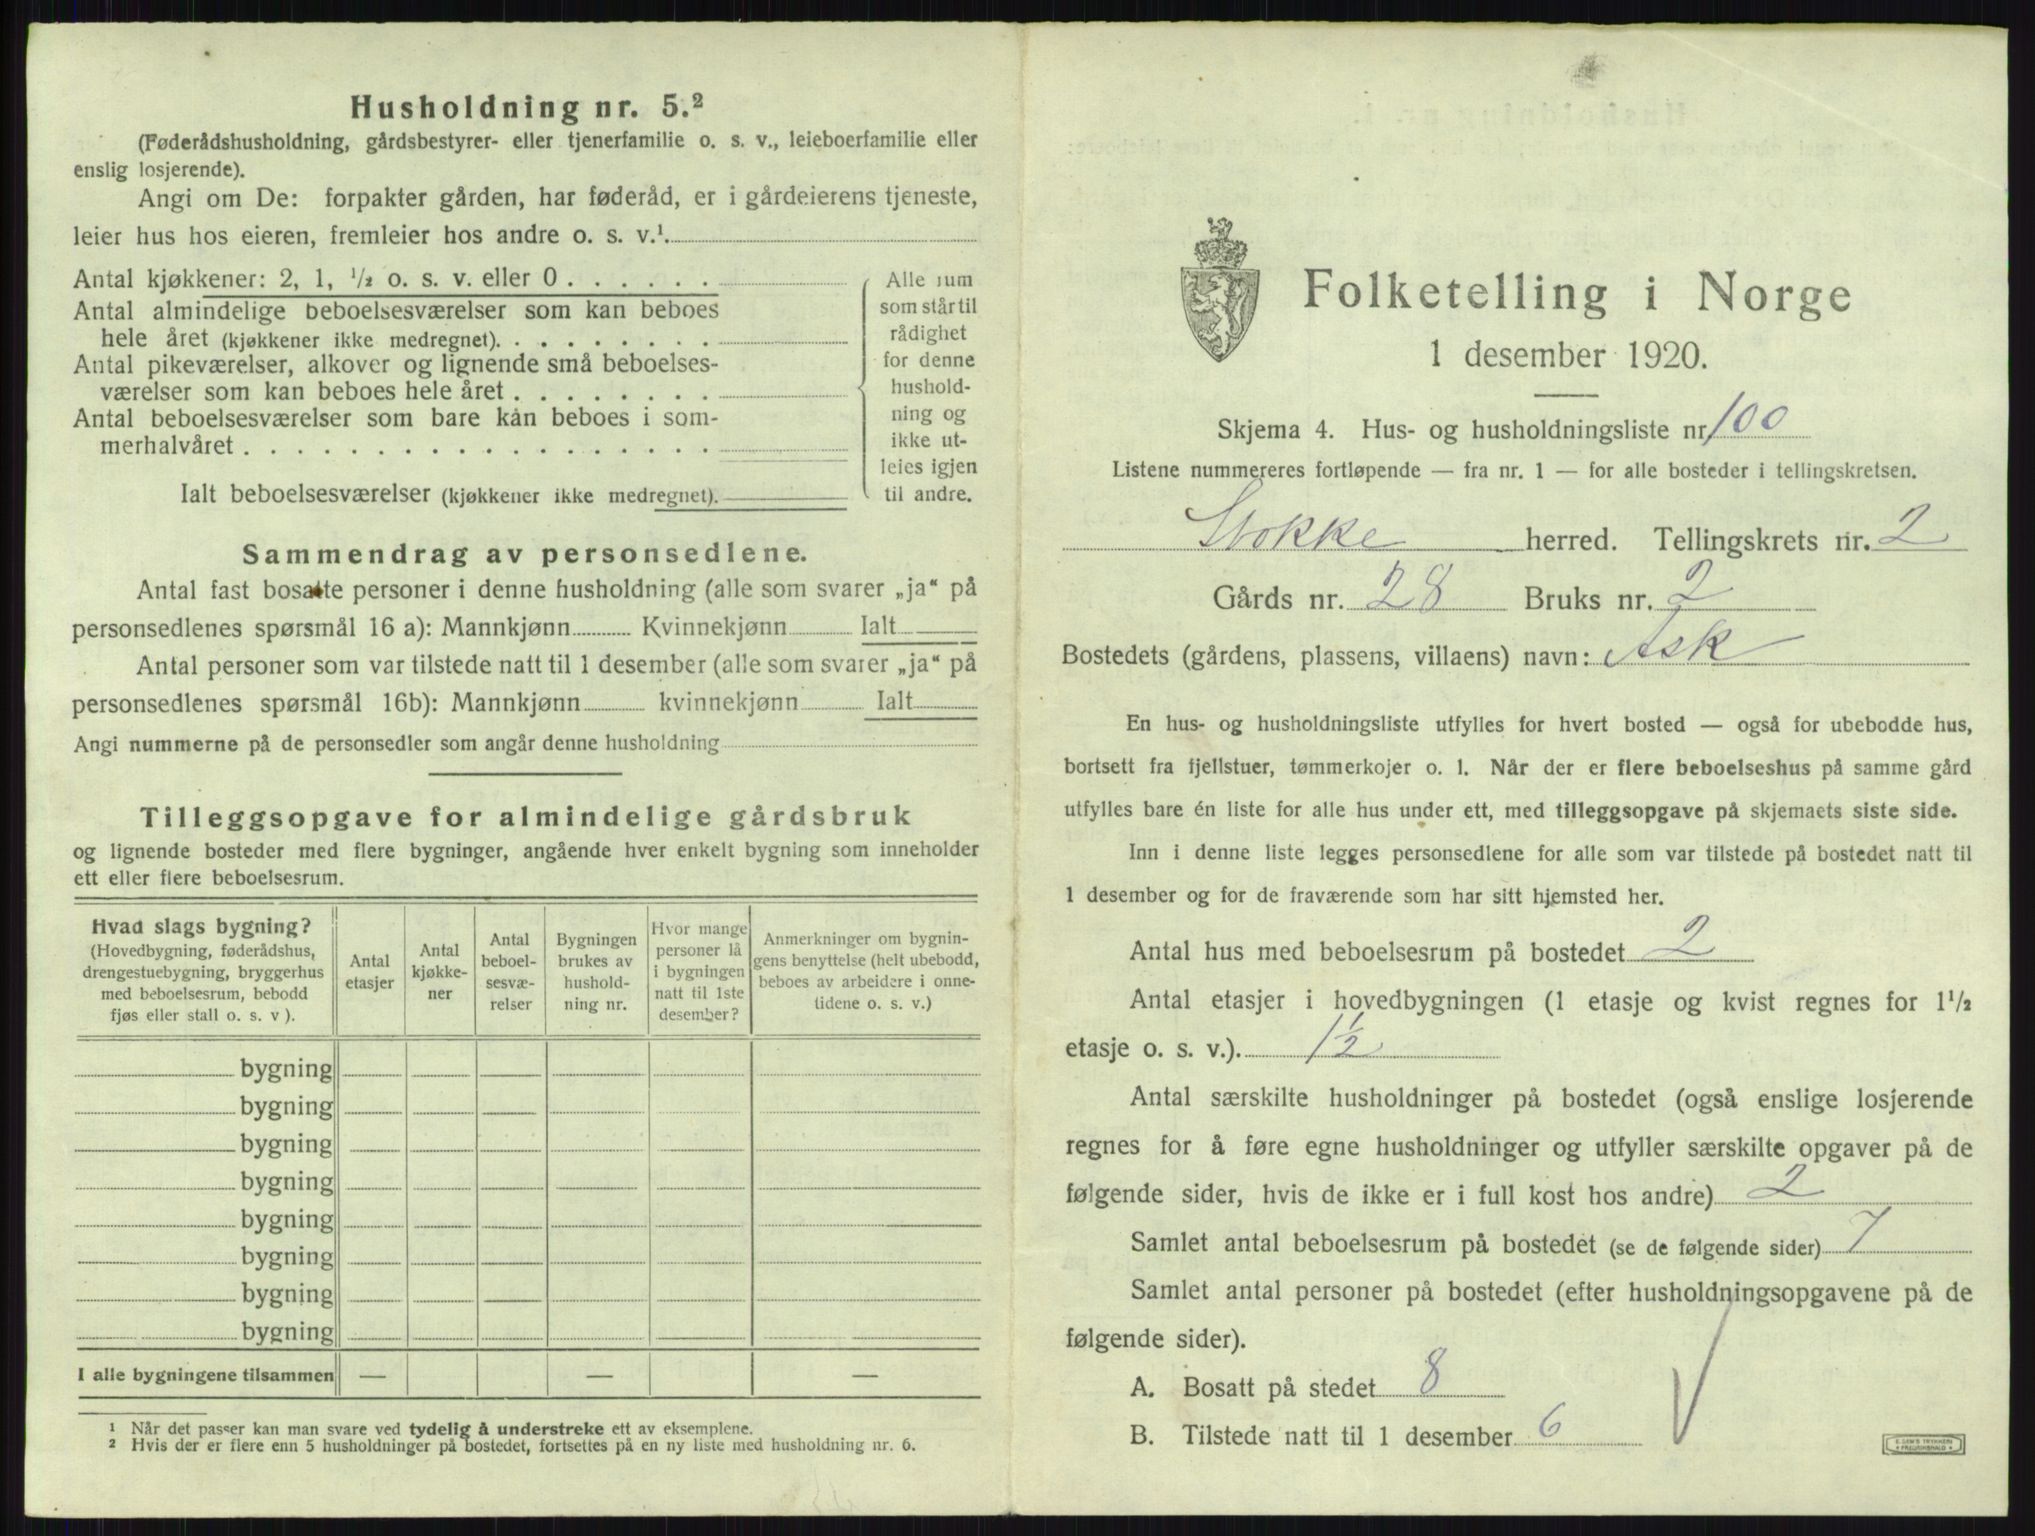 Husholdning nr. 5.²
(Føderådshusholdning, gårdsbestyrer- eller tjenerfamilie o. s. v., leieboerfamilie eller
enslig losjerende).
Angi om De: forpakter gården, har føderåd, er i gårdeierens tjeneste,
leier hus hos eieren, fremleier hos andre o. s. v.¹.
Antal kjøkkener: 2, 1, ½ o. s. v. eller 0
Antal almindelige beboelsesværelser som kan beboes
hele året (kjøkkener ikke medregnet).
Antal pikeværelser, alkover og lignende små beboelses-
værelser som kan beboes hele året
Antal beboelsesværelser som bare kan beboes i som-
merhalvåret
Ialt beboelsesværelser (kjøkkener ikke medregnet).
Alle rum
som står til
rådighet
for denne
hushold-
ning og
ikke ut-
leies igjen
til andre.
Sammendrag av personsedlene.
Antal fast bosatte personer i denne husholdning (alle som svarer „ja“ på
personsedlenes spørsmål 16 a): Mannkjønn Kvinnekjønn Ialt
Antal personer som var tilstede natt til 1 desember (alle som svarer „ja“ på
personsedlenes spørsmål 16b): Mannkjønn kvinnekjønn Ialt
Angi nummerne på de personsedler som angår denne husholdning
Tilleggsopgave for almindelige gårdsbruk
og lignende bosteder med flere bygninger, angående hver enkelt bygning som inneholder
ett eller flere beboelsesrum.
Hvad slags bygning?
(Hovedbygning, føderådshus,
drengestuebygning, bryggerhus
med beboelsesrum, bebodd
fjøs eller stall o. s. v ).
Antal
etasjer
Antal
kjøkke-
ner
Antal
beboel-
sesvæ-
relser
Bygningen
brukes av
hushold-
ning nr.
Hvor mange
personer lå
i bygningen
natt til 1ste
desember?
Anmerkninger om bygnin-
gens benyttelse (helt ubebodd,
beboes av arbeidere i onne-
tidene o. s. v.)
bygning
bygning
bygning
bygning
bygning
bygning
bygning
bygning
I alle bygningene tilsammen — — —
¹ Når det passer kan man svare ved tydelig å understreke ett av eksemplene.
² Hvis der er flere enn 5 husholdninger på bostedet, fortsettes på en ny liste med husholdning nr. 6.
Folketelling i Norge
1 desember 1920.
Skjema 4. Hus- og husholdningsliste nr 100
Listene nummereres fortløpende — fra nr. 1 — for alle bosteder i tellingskretsen.
Stokke herred. Tellingskrets nr. 2
Gårds nr. 28 Bruks nr. 2
Bostedets (gårdens, plassens, villaens) navn: Ask
En hus- og husholdningsliste utfylles for hvert bosted — også for ubebodde hus,
bortsett fra fjellstuer, tømmerkojer o. l. Når der er flere beboelseshus på samme gård
utfylles bare én liste for alle hus under ett, med tilleggsopgave på skjemaets siste side.
Inn i denne liste legges personsedlene for alle som var tilstede på bostedet natt til
1 desember og for de fraværende som har sitt hjemsted her.
Antal hus med beboelsesrum på bostedet 2
Antal etasjer i hovedbygningen (1 etasje og kvist regnes for 1½
etasje o. s. v.). 1½
Antal særskilte husholdninger på bostedet (også enslige losjerende
regnes for å føre egne husholdninger og utfyller særskilte opgaver på de
følgende sider, hvis de ikke er i full kost hos andre) 2
Samlet antal beboelsesrum på bostedet (se de følgende sider) 7
Samlet antal personer på bostedet (efter husholdningsopgavene på de
følgende sider).
A. Bosatt på stedet 8
B. Tilstede natt til 1 desember 6
E. SEM'S TRYKKERI
FREDRIKSHALD